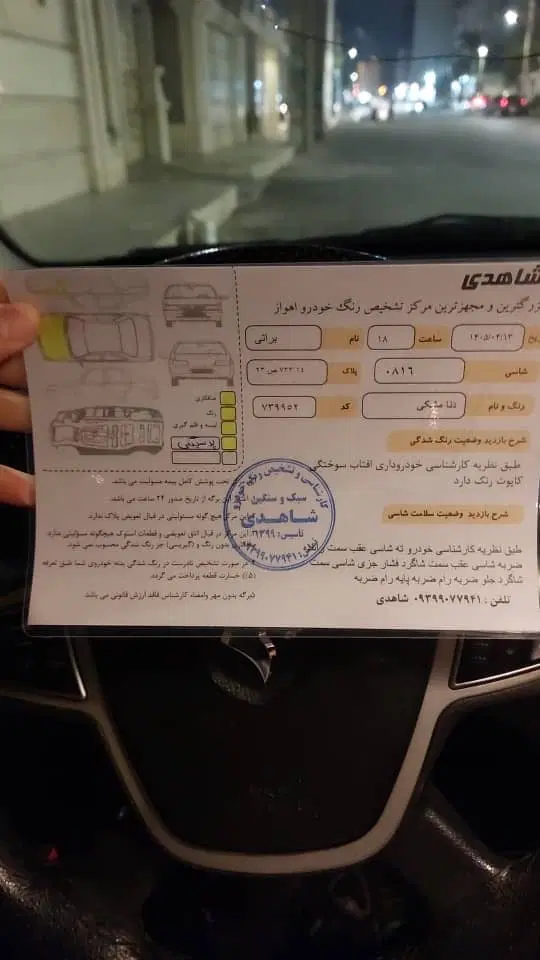 شاهدی
بزرگترین و مجهزترین مرکز تشخیص رنگ خودرو اهواز
۱۴۰۵/۰۲/۱۳ ساعت ۱۸ نام براتی
شاسی ۰۸۱۶ پلاک
رنگ و نام دنا مشکی کد ۷۳۹۹۵۲
شرح بازدید وضعیت رنگ شدگی
طبق نظریه کارشناسی خودروداری افتاب سوختگی
کاپوت رنگ دارد
شرح بازدید وضعیت سلامت شاسی
طبق نظریه کارشناسی خودرو ته شاسی عقب سمت
ضربه شاسی عقب سمت شاگرد فشار جزی شاسی سمت
شاگرد جلو ضربه رام ضربه پایه رام ضربه
تلفن : ۰۹۳۹۹۰۷۷۹۴۱ شاهدی
صافکاری
رنگ
لیسه و قلم گیری
تحت پوشش کامل بیمه مسولیت می باشد.
این برگه از تاریخ صدور ۲۴ ساعت می باشد.
مرکز هیچ گونه مسئولیتی در قبال تعویض پلاک ندارد.
این مرکز در قبال اتاق تعویضی و قطعات استوک هیچگونه مسؤلیتی ندارد.
بدون رنگ و (گیربسی) جز رنگ شدگی محسوب نمی شود.
در صورت تشخیص نادرست در رنگ شدگی بدنه خودروی شما طبق تعرفه
خسارت قطعه پرداخت می گردد.
برگه بدون مهر وامضاء کارشناس فاقد ارزش قانونی می باشد
کارشناسی و تشخیص رنگ خودرو
سبک و سنگین
شاهدی
تاسیس: ۱۳۹۹
۰۹۳۹۹۰۷۷۹۴۱